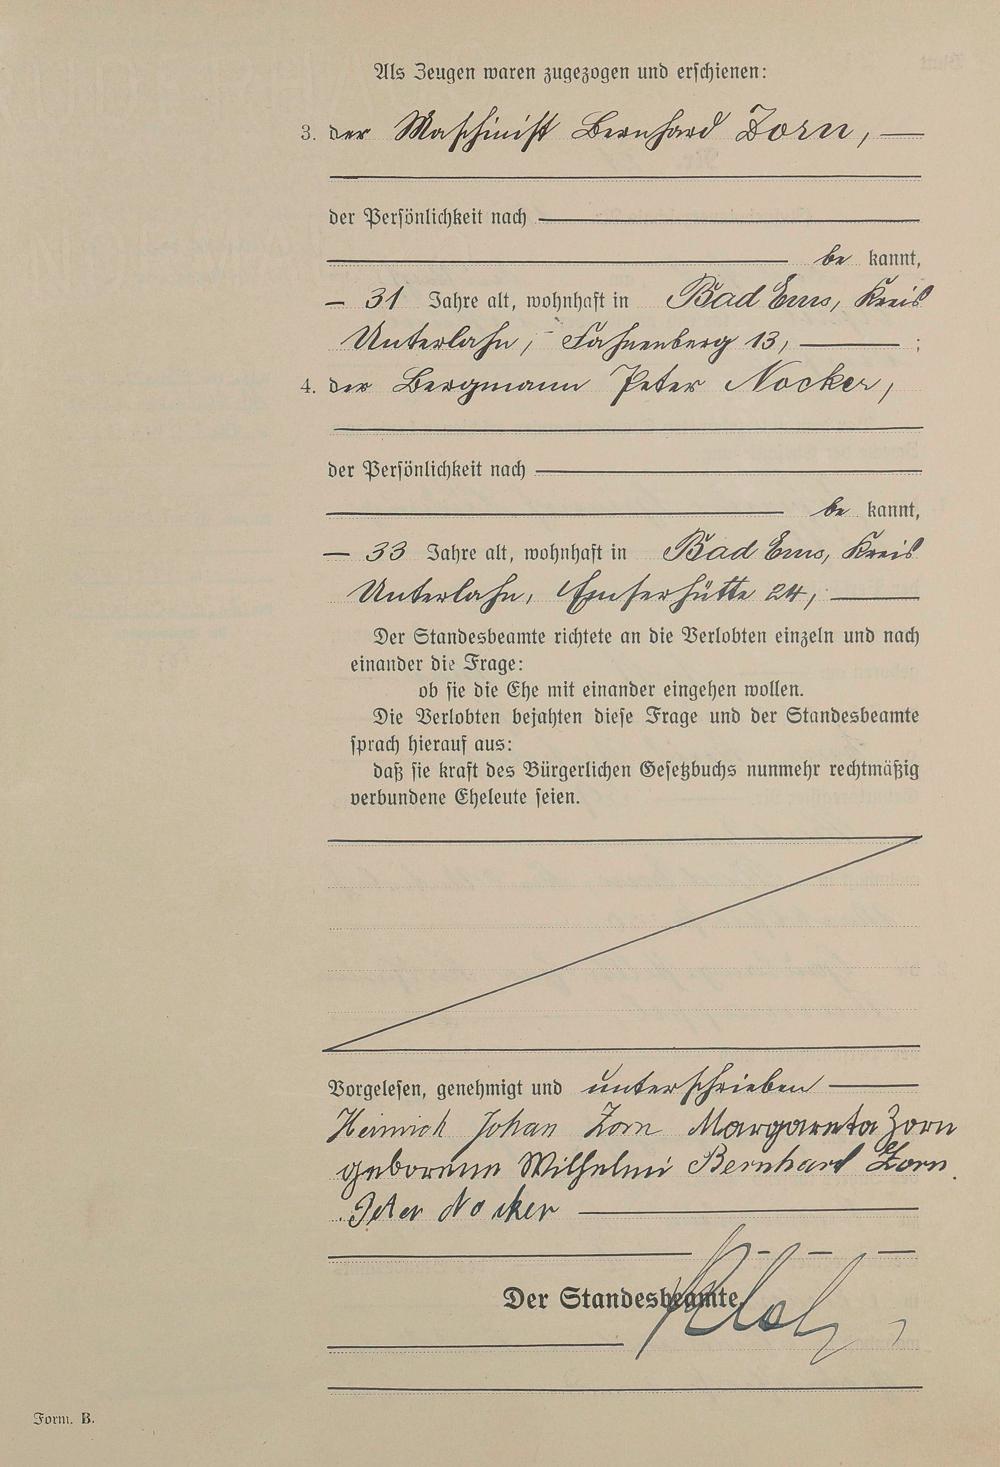 Als Zeugen waren zugezogen und erschienen:
3. der Maschinist Bernhard Zorn, —
der Persönlichkeit nach
be kannt,
— 31 Jahre alt, wohnhaft in Bad Ems, Kreis
Unterlahn, Fahnenberg 13, — ;
4. der Bergmann Peter Nocker,
der Persönlichkeit nach
be kannt,
— 33 Jahre alt, wohnhaft in Bad Ems, Kreis
Unterlahn, Emserhütte 24, —
Der Standesbeamte richtete an die Verlobten einzeln und nach
einander die Frage:
ob sie die Ehe mit einander eingehen wollen.
Die Verlobten bejahten diese Frage und der Standesbeamte
sprach hierauf aus:
daß sie kraft des Bürgerlichen Gesetzbuchs nunmehr rechtmäßig
verbundene Eheleute seien.
Vorgelesen, genehmigt und unterschrieben —
Heinrich Johan Zorn Margareta Zorn
geborene Wilhelmi Bernhard Zorn.
Peter Nocker —
Der Standesbeamte.
Form. B.